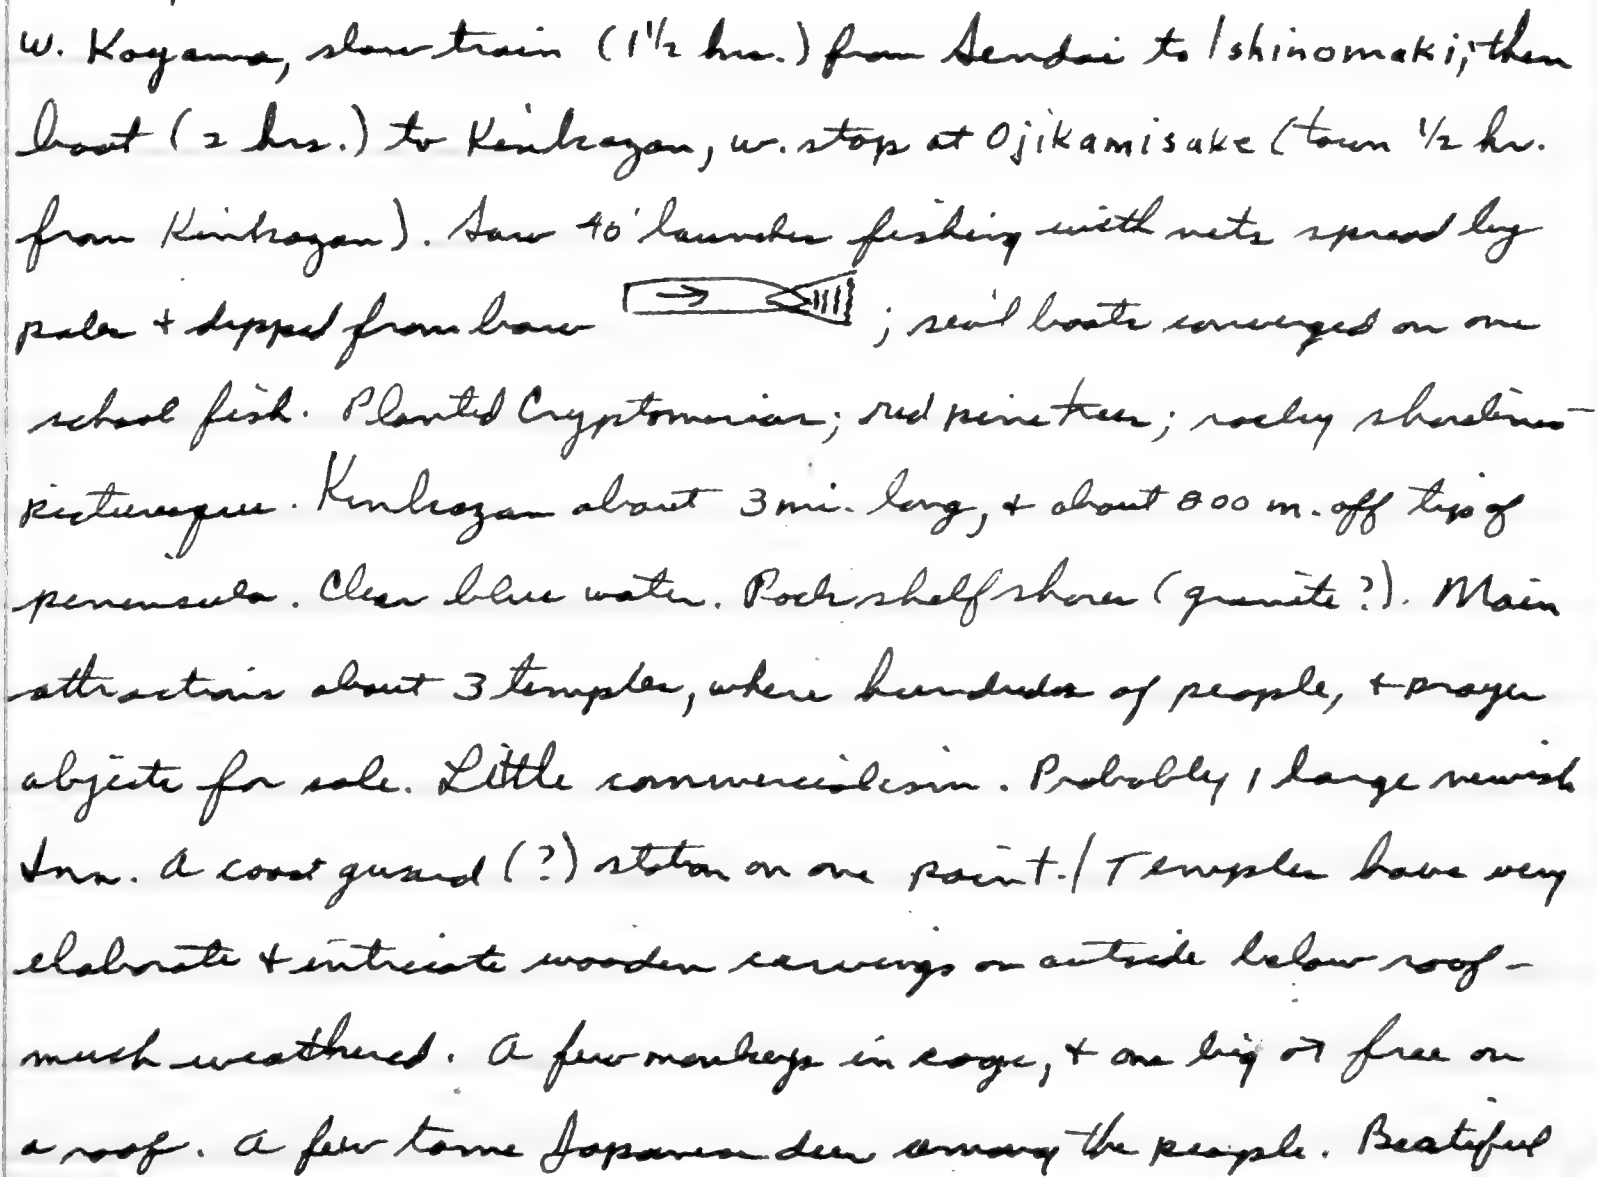 W. Koyama, slow train (1 1/2 hrs.) from Sendai to Ishinomaki; then
boat (2 hrs.) to Kinkazan, w. stop at Ojikamisake (town 1/2 hr.
from Kinkazan). Saw 40' launches fishing with nets spread by
poles + dipped from bow ; sev'l boats converged on one
school fish. Planted Cryptomerias; red pine trees; rocky shorelines –
picturesque. Kinkazan about 3 mi. long, + about 800 m. off tip of
peninsula. Clear blue water. Rock shelf shores (granite?). Main
attractions about 3 temples, where hundreds of people, + prayer
objects for sale. Little commercialism. Probably 1 large newish
Inn. A coast guard (?) station on one point. / Temples have very
elaborate + intricate wooden carvings on outside below roof –
much weathered. A few monkeys in cage, + one big ♂ free on
a roof. A few tame Japanese deer among the people. Beatiful